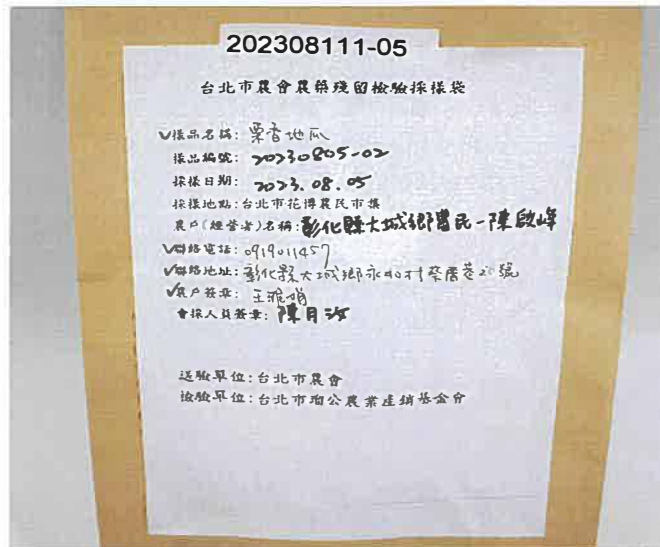 202308111-05
台北市農會農藥殘留檢驗採樣袋
✓樣品名稱: 栗香地瓜
樣品編號: 20230805-02
採樣日期: 2023.08.05
採樣地點:台北市花博農民市集
農戶(經營者)名稱:彰化縣大城鄉農民-陳啟峰
✓聯絡電話: 0919011457
✓聯絡地址: 彰化縣大城鄉永和村 20號
✓農戶簽章: 王
會採人員簽章: 陳月
送驗單位:台北市農會
檢驗單位:台北市瑠公農業產銷基金會